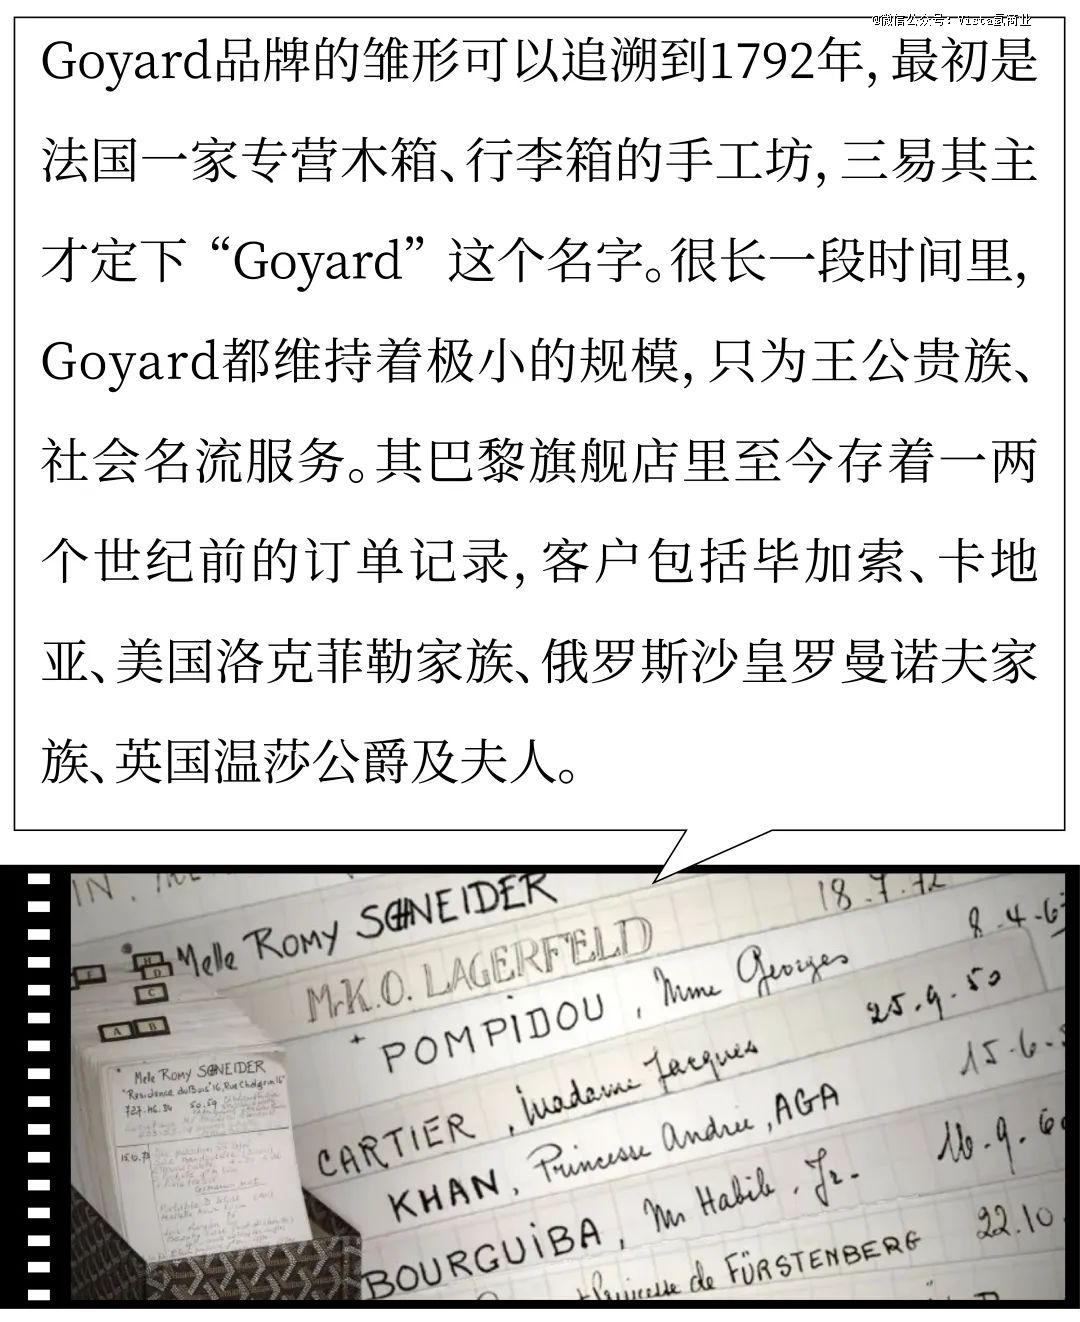 @微信公众号：Vista氢商业
Goyard品牌的雏形可以追溯到1792年，最初是
法国一家专营木箱、行李箱的手工坊，三易其主
才定下“Goyard”这个名字。很长一段时间里，
Goyard都维持着极小的规模，只为王公贵族、
社会名流服务。其巴黎旗舰店里至今存着一两
个世纪前的订单记录，客户包括毕加索、卡地
亚、美国洛克菲勒家族、俄罗斯沙皇罗曼诺夫家
族、英国温莎公爵及夫人。
Melle ROMY SCHNEIDER 18.7.72
Mr K.O. LAGERFELD
POMPIDOU, Mme Georges 8-4-6
CARTIER, Madame Jacques 25.9.50
KHAN, Princesse Andrée, AGA 15-6-
BOURGUIBA, Mr Habib. Jr. 16.9.6
Princesse de FÜRSTENBERG 22.10
E
H
D
C
A B
Melle ROMY SCHNEIDER
"Résidence du Bois" 16, Rue Chalgrin 16
727.46.34 50.59